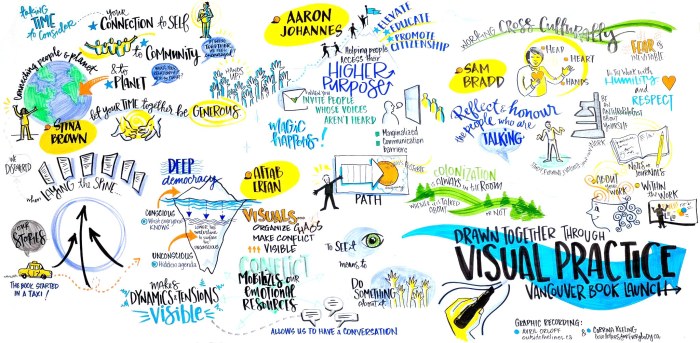 taking
TIME
to Consider
YOUR
CONNECTION to SELF
to COMMUNITY
& to
PLANET
Connecting people & planet
let your TIME together be GENEROUS
STINA
BROWN
HANDS
UP!
AARON
JOHANNES
ELEVATE
EDUCATE
PROMOTE
CITIZENSHIP
Helping people
access their
HIGHER
PURPOSE
INVITE PEOPLE
WHOSE VOICES
AREN'T HEARD
MAGIC
happens!
Marginalized
Communication
barriers
WORKING Cross Culturally
SAM
BRADD
HEAD
HEART
HANDS
FEAR of
Do the WORK with
HUMILITY
and
RESPECT
Reflect & honour
the people who are
TALKING
ABOUT
YOURSELF
NOTES or
JOURNALS
ABOUT
your
WORK
WITHIN
the WORK
COLONIZATION
is always in the ROOM
WHETHER it's TALKED
ABOUT
or NOT
we
DISAPPEARED
when
LAYING the SPINE
OUR
STORIES
THE BOOK STARTED
IN A TAXI!
DEEP
democracy
CONSCIOUS
KNOWN
UNCONSCIOUS
Hidden agenda
makes
DYNAMICS & TENSIONS
VISIBLE
AFTAB
ERFAN
VISUALS
ORGANIZE CHAOS
MAKE CONFLICT
VISIBLE
CONFLICT
MOBILIZES our
emotional
RESOURCES
ALLOWS US to HAVE a CONVERSATION
PATH
TO SEE it
means to
DO
SOMETHING
about it
DRAWN TOGETHER THROUGH
VISUAL PRACTICE
VANCOUVER BOOK LAUNCH
GRAPHIC RECORDING:
AVRIL ORLOFF
outsidethelines.ca
&
CORRINA KEELING